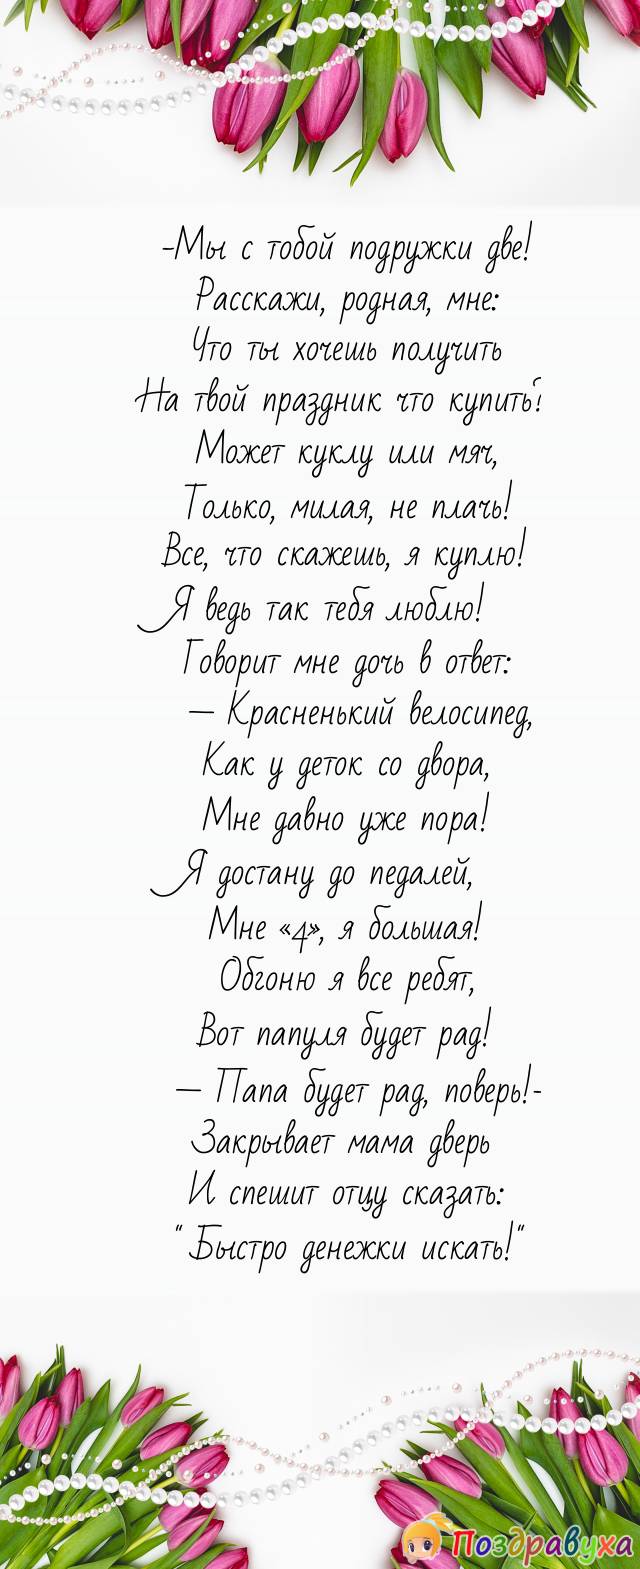 -Мы с тобой подружки две!
Расскажи, родная, мне:
Что ты хочешь получить
На твой праздник что купить?
Может куклу или мяч,
Только, милая, не плачь!
Все, что скажешь, я куплю!
Я ведь так тебя люблю!
Говорит мне дочь в ответ:
— Красненький велосипед,
Как у деток со двора,
Мне давно уже пора!
Я достану до педалей,
Мне «4», я большая!
Обгоню я все ребят,
Вот папуля будет рад!
— Папа будет рад, поверь!-
Закрывает мама дверь
И спешит отцу сказать:
" Быстро денежки искать!"
Поздравуха